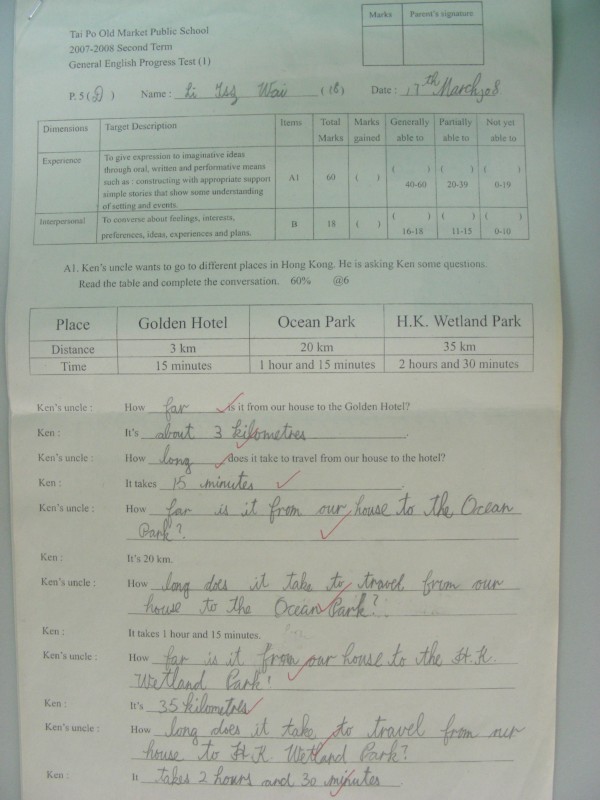 Marks Parent's signature
Tai Po Old Market Public School
2007-2008 Second Term
General English Progress Test (1)
P. 5 (D) Name : Li Tsz Wai (18) Date : 17th March, 08
Dimensions Target Description Items Total Marks Marks gained Generally able to Partially able to Not yet able to
Experience To give expression to imaginative ideas
through oral, written and performative means
such as : constructing with appropriate support
simple stories that show some understanding
of setting and events.
A1 60 ( ) ( ) 40-60 ( ) 20-39 ( ) 0-19
Interpersonal To converse about feelings, interests,
preferences, ideas, experiences and plans.
B 18 ( ) ( ) 16-18 ( ) 11-15 ( ) 0-10
A1. Ken's uncle wants to go to different places in Hong Kong. He is asking Ken some questions.
Read the table and complete the conversation. 60% @6
Place Golden Hotel Ocean Park H.K. Wetland Park
Distance 3 km 20 km 35 km
Time 15 minutes 1 hour and 15 minutes 2 hours and 30 minutes
Ken's uncle : How far is it from our house to the Golden Hotel?
Ken : It's about 3 kilometres.
Ken's uncle : How long does it take to travel from our house to the hotel?
Ken : It takes 15 minutes.
Ken's uncle : How far is it from our house to the Ocean
Park?
Ken : It's 20 km.
Ken's uncle : How long does it take to travel from our
house to the Ocean Park?
Ken : It takes 1 hour and 15 minutes.
Ken's uncle : How far is it from our house to the H.K.
Wetland Park?
Ken : It's 35 kilometres
Ken's uncle : How long does it take to travel from our
house to H.K. Wetland Park?
Ken : It takes 2 hours and 30 minutes.